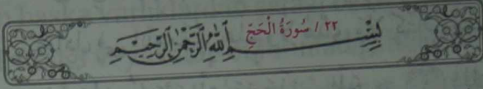 ٢٢ / سُورَةُ الْحَجِّ
بِسْمِ اللَّهِ الرَّحْمَٰنِ الرَّحِيمِ